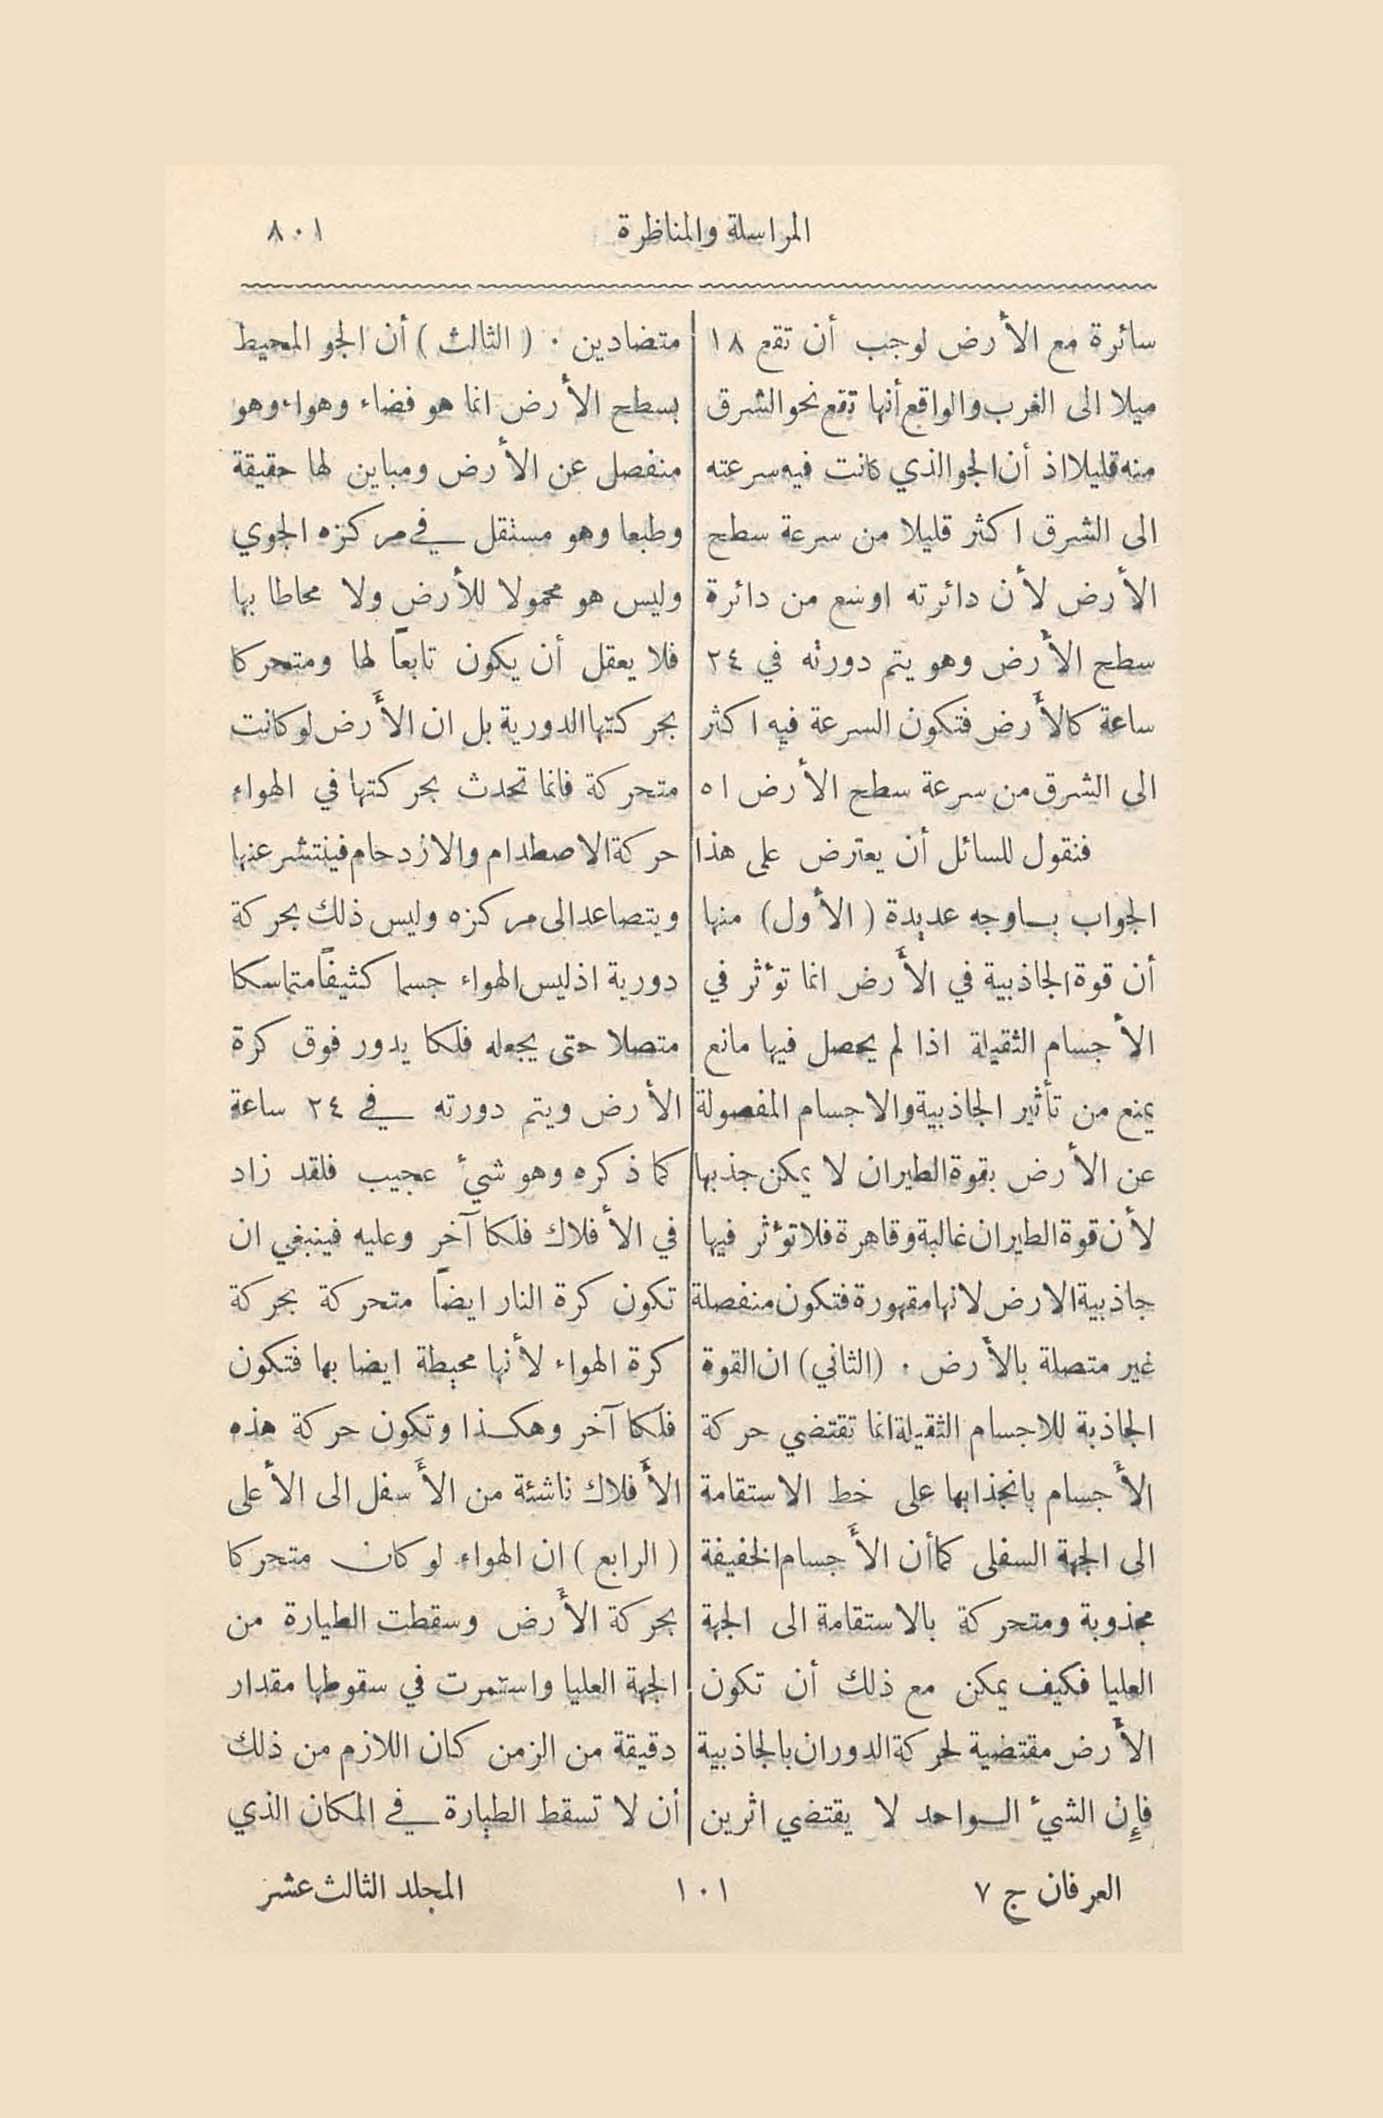 المراسلة والمناظرة
٨٠١
سائرة مع الأرض لوجب أن تقع ١٨
ميلا الى الغرب والواقع أنها تقع نحو الشرق
منه قليلا اذ أن الجو الذي كانت فيه سرعته
الى الشرق اكثر قليلا من سرعة سطح
الأرض لأن دائرته اوسع من دائرة
سطح الأرض وهو يتم دورته في ٢٤
ساعة كالأرض فتكون السرعة فيه اكثر
الى الشرق من سرعة سطح الأرض اه
فنقول للسائل أن يعترض على هذا
الجواب باوجه عديدة (الأول) منها
أن قوة الجاذبية في الأرض انما تؤثر في
الأجسام الثقيلة اذا لم يحصل فيها مانع
يمنع من تأثير الجاذبية والاجسام المفصولة
عن الأرض بقوة الطيران لا يمكن جذبها
لأن قوة الطيران غالبة وقاهرة فلا تؤثر فيها
جاذبية الارض لانها مقهورة فتكون منفصلة
غير متصلة بالأرض . (الثاني) ان القوة
الجاذبة للاجسام الثقيلة انما تقتضي حركة
الأجسام بانجذابها على خط الاستقامة
الى الجهة السفلى كما أن الأجسام الخفيفة
مجذوبة ومتحركة بالاستقامة الى الجهة
العليا فكيف يمكن مع ذلك أن تكون
الأرض مقتضية لحركة الدوران بالجاذبية
فإن الشيء الواحد لا يقتضي اثرين
متضادين . (الثالث) أن الجو المحيط
بسطح الأرض انما هو فضاء وهواء وهو
منفصل عن الأرض ومباين لها حقيقة
وطبعا وهو مستقل في مركزه الجوي
وليس هو محمولا للأرض ولا محاطا بها
فلا يعقل أن يكون تابعاً لها ومتحركا
بحركتها الدورية بل ان الأرض لو كانت
متحركة فانما تحدث بحركتها في الهواء
حركة الاصطدام والازدحام فينتشر عنها
ويتصاعد الى مركزه وليس ذلك بحركة
دورية اذ ليس الهواء جسما كثيفاً متماسكا
متصلا حتى يجعله فلكا يدور فوق كرة
الأرض ويتم دورته في ٢٤ ساعة
كما ذكره وهو شيء عجيب فلقد زاد
في الأفلاك فلكا آخر وعليه فينبغي ان
تكون كرة النار ايضاً متحركة بحركة
كرة الهواء لأنها محيطة ايضا بها فتكون
فلكا آخر وهكذا وتكون حركة هذه
الأفلاك ناشئة من الأسفل الى الأعلى
(الرابع) ان الهواء لو كان متحركا
بحركة الأرض وسقطت الطيارة من
الجهة العليا واستمرت في سقوطها مقدار
دقيقة من الزمن كان اللازم من ذلك
أن لا تسقط الطيارة في المكان الذي
العرفان ج ٧
١٠١
المجلد الثالث عشر